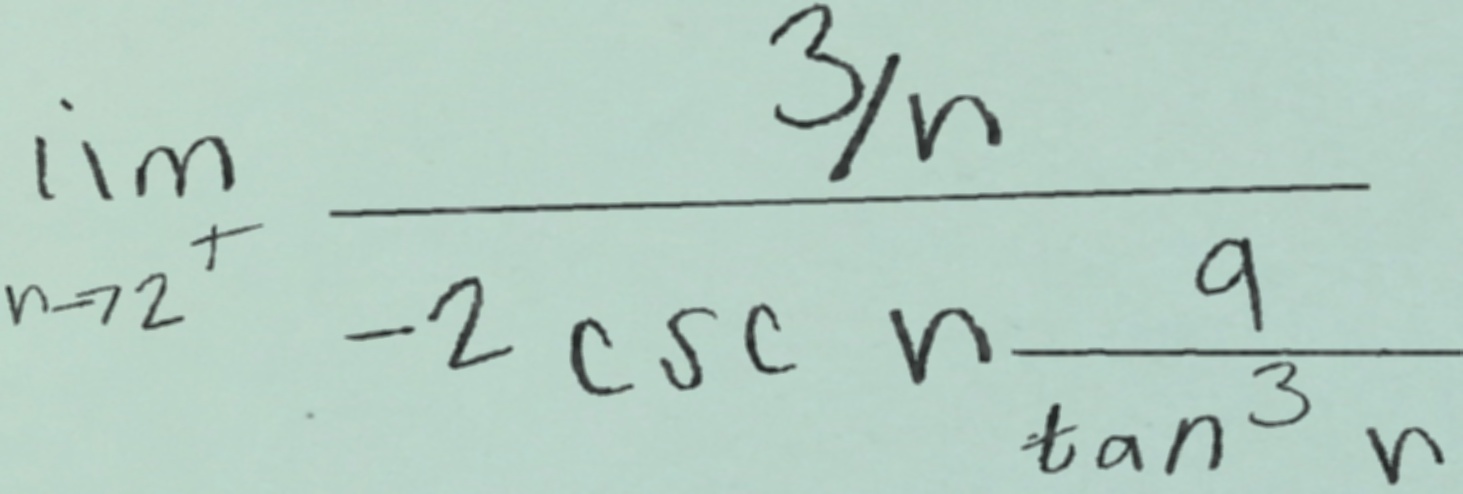 lim n→2⁺ \frac{3/n}{-2 csc n \frac{9}{tan³ n}}